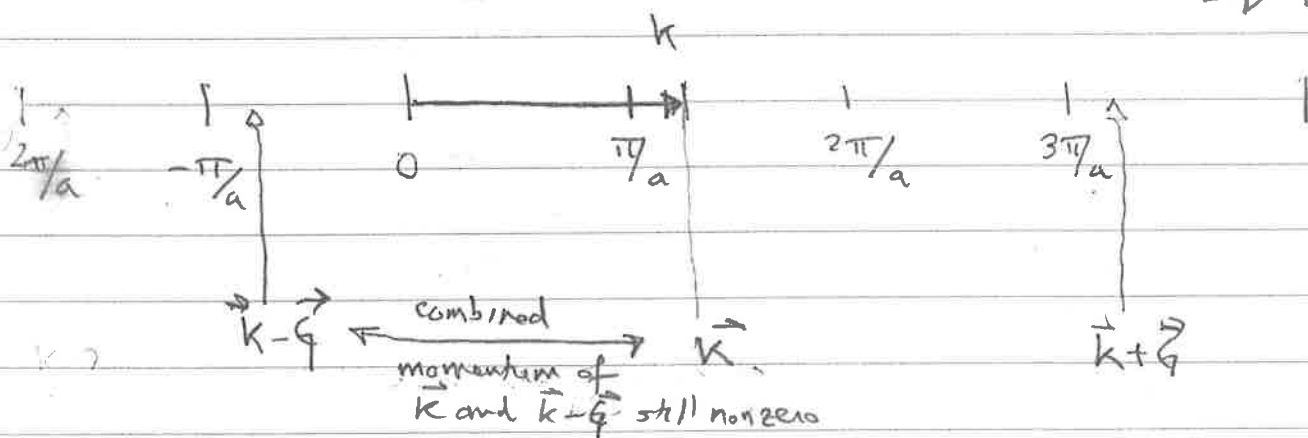 k
2π/a -π/a 0 π/a 2π/a 3π/a
k⃗-G⃗ combined k⃗ k⃗+G⃗
momentum of
k⃗ and k⃗-G⃗ still nonzero